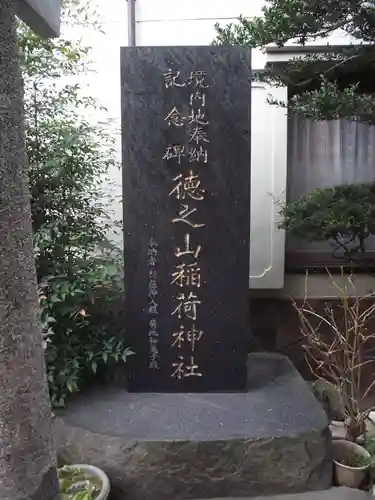 境内地奉納
記念碑
徳之山稲荷神社
奉納者